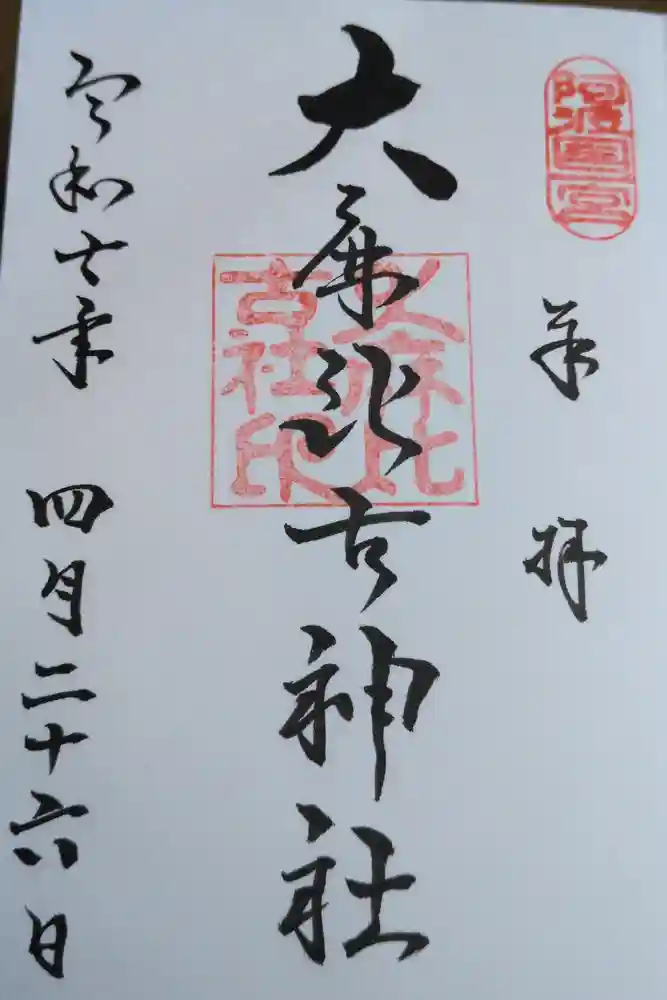 阿波國一宮
奉拝
大麻比古神社
大麻比
古社印
令和七年 四月二十六日